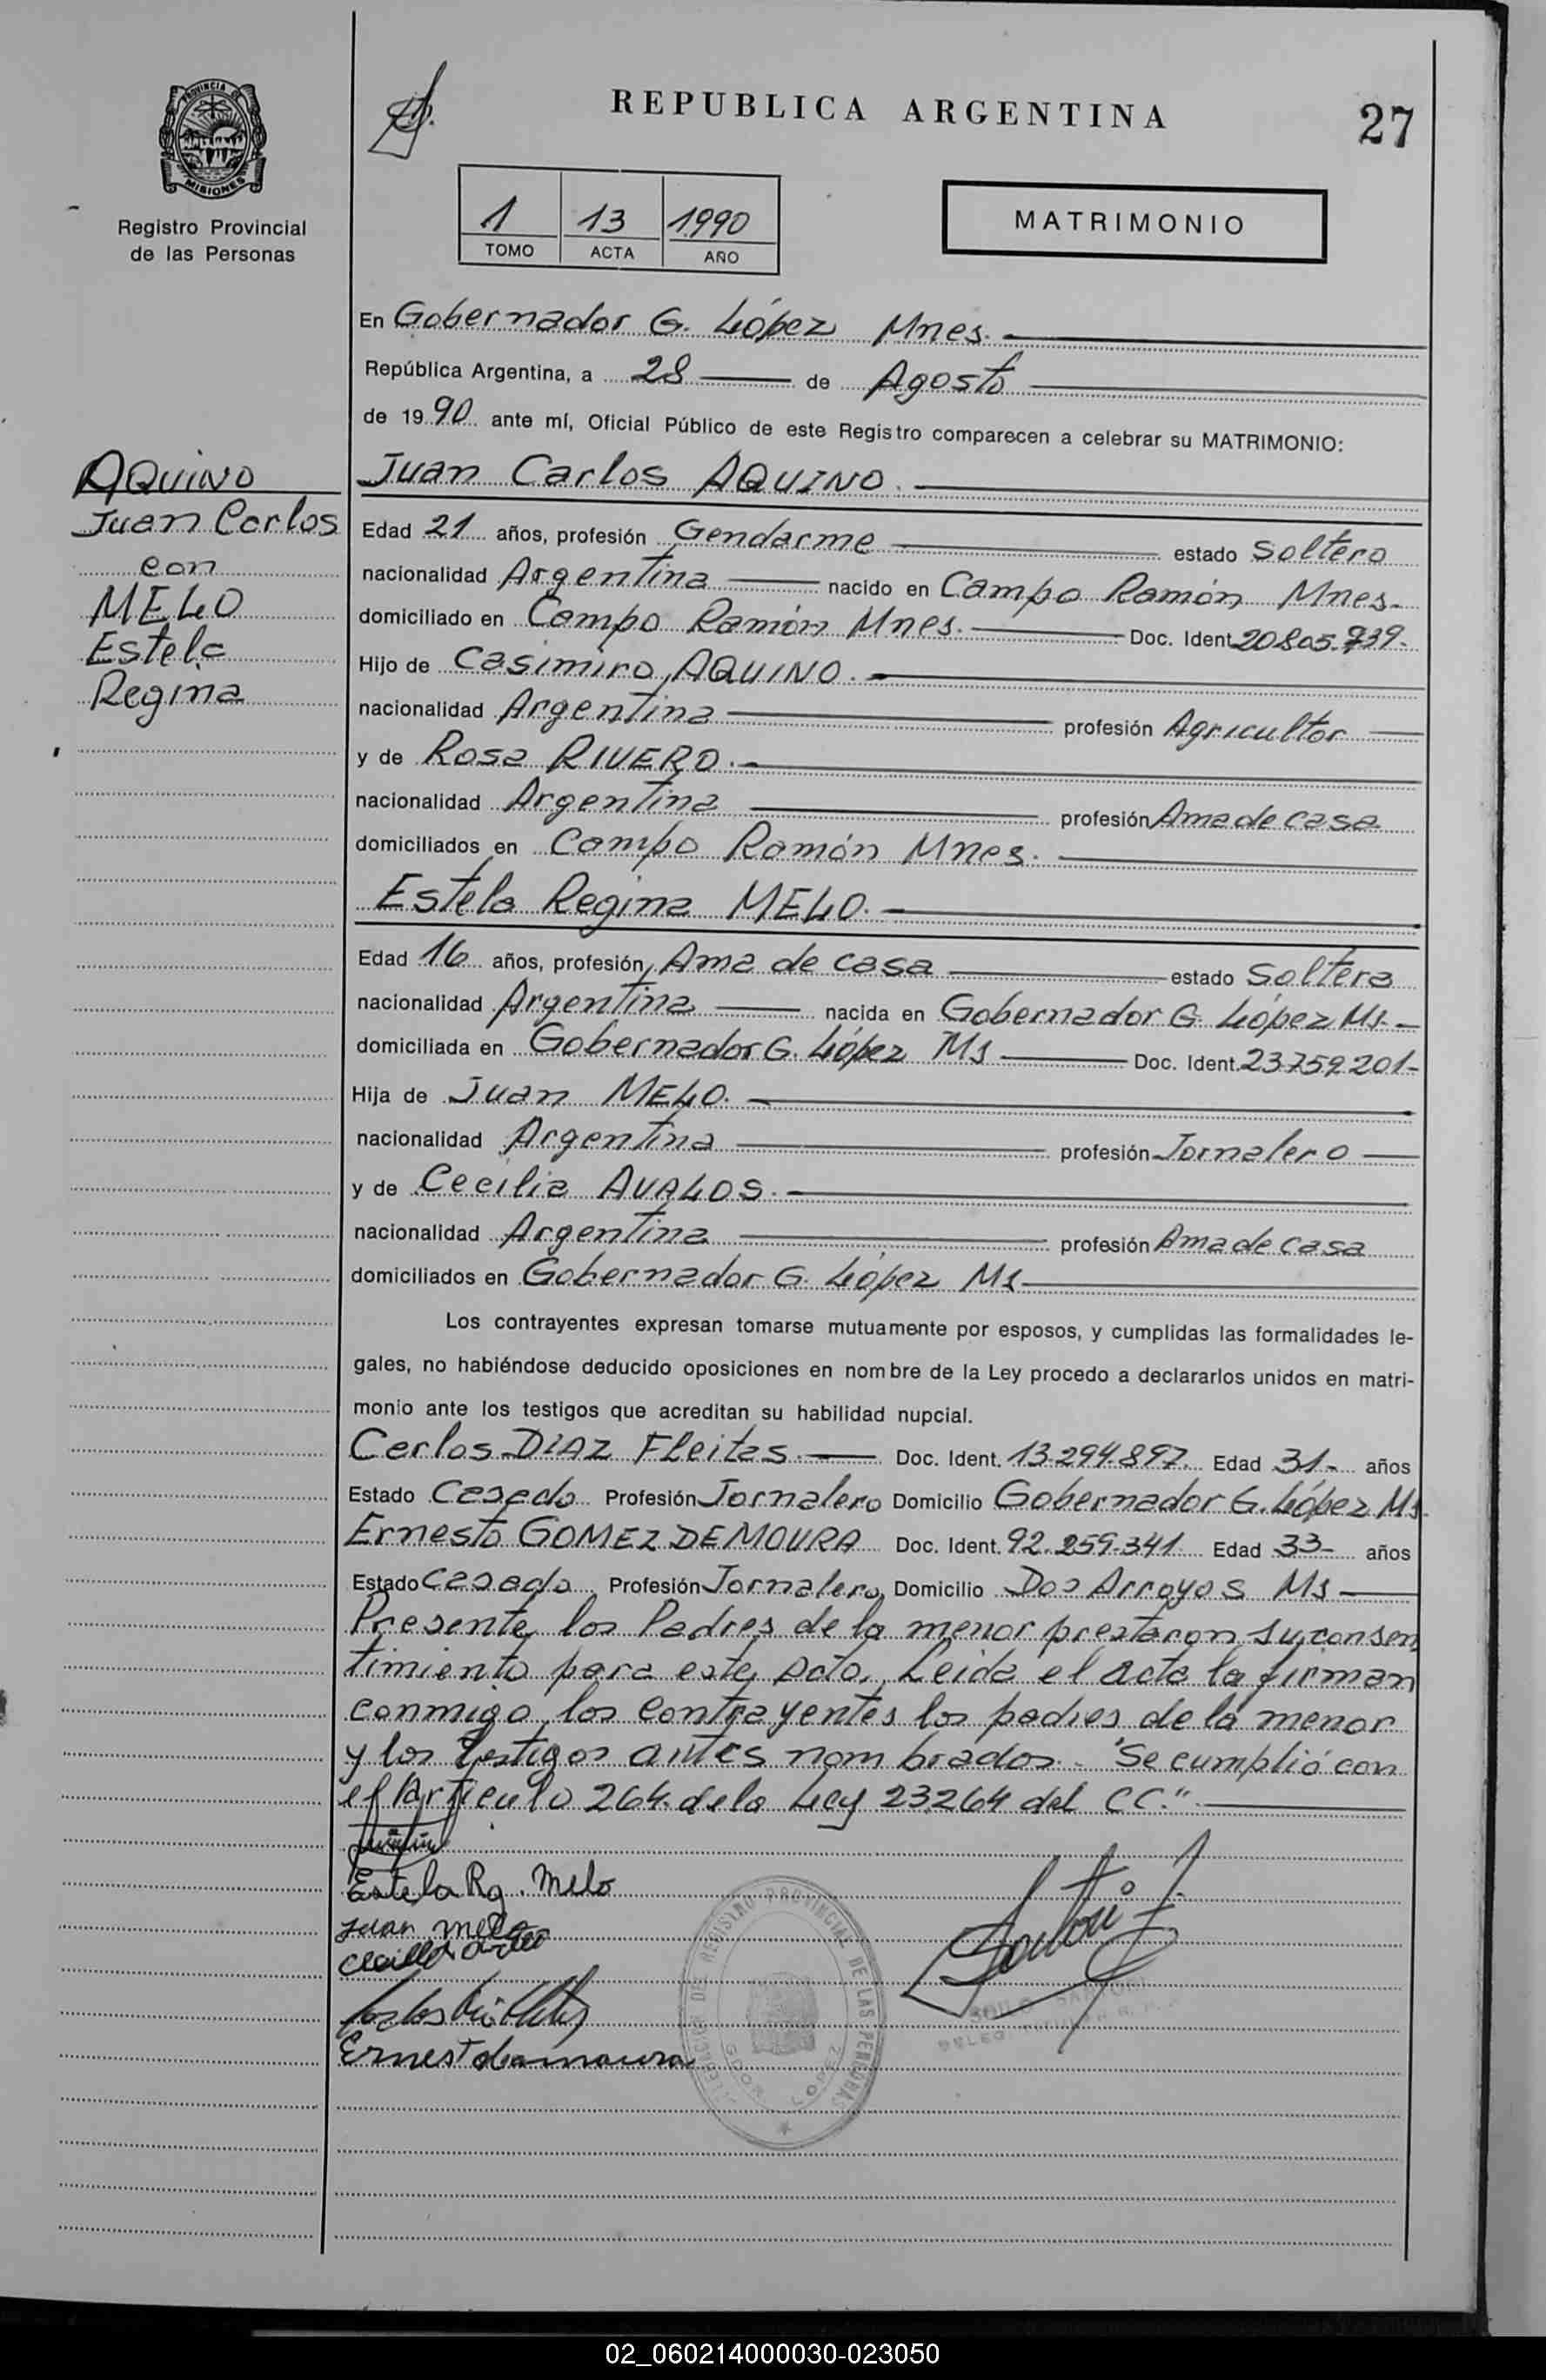 PROVINCIA DE
MISIONES
Registro Provincial
de las Personas
REPUBLICA ARGENTINA
27
1 13 1990
TOMO ACTA AÑO
MATRIMONIO
En Gobernador G. López Mnes.
República Argentina, a 28 de Agosto
de 1990 ante mí, Oficial Público de este Registro comparecen a celebrar su MATRIMONIO:
AQUINO
Juan Carlos
con
MELO
Estela
Regina
Juan Carlos AQUINO.
Edad 21 años, profesión Gendarme estado Soltero
nacionalidad Argentina nacido en Campo Ramón Mnes.
domiciliado en Campo Ramón Mnes. Doc. Ident. 20.805.939.
Hijo de Casimiro AQUINO.
nacionalidad Argentina profesión Agricultor
y de Rosa RIVERO.
nacionalidad Argentina profesión Ama de casa
domiciliados en Campo Ramón Mnes.
Estela Regina MELO.
Edad 16 años, profesión Ama de casa estado Soltera
nacionalidad Argentina nacida en Gobernador G. López Ms.
domiciliada en Gobernador G. López Ms Doc. Ident. 23.759.201-
Hija de Juan MELO.
nacionalidad Argentina profesión Jornalero
y de Cecilia AVALOS.
nacionalidad Argentina profesión Ama de casa
domiciliados en Gobernador G. López Ms
Los contrayentes expresan tomarse mutuamente por esposos, y cumplidas las formalidades le-
gales, no habiéndose deducido oposiciones en nombre de la Ley procedo a declararlos unidos en matri-
monio ante los testigos que acreditan su habilidad nupcial.
Carlos DIAZ FLeitas. Doc. Ident. 13.294.897. Edad 31- años
Estado Casado Profesión Jornalero Domicilio Gobernador G. López Ms.
Ernesto GOMEZ DE MOURA Doc. Ident. 92.259.341 Edad 33- años
Estado Casado Profesión Jornalero Domicilio Dos Arroyos Ms
Presente los Padres de la menor prestaron su consen
timiento para este acto. Leida el acta la firman
conmigo los contrayentes los padres de la menor
y los testigos antes nombrados. "Se cumplió con
el Artículo 264 de la Ley 23264 del CC."
Estela Rg. Melo
Juan melo
Ernest demoura
DEL REGISTRO PROVINCIAL DE LAS PERSONAS
GDOR. LOPEZ
02_060214000030-023050